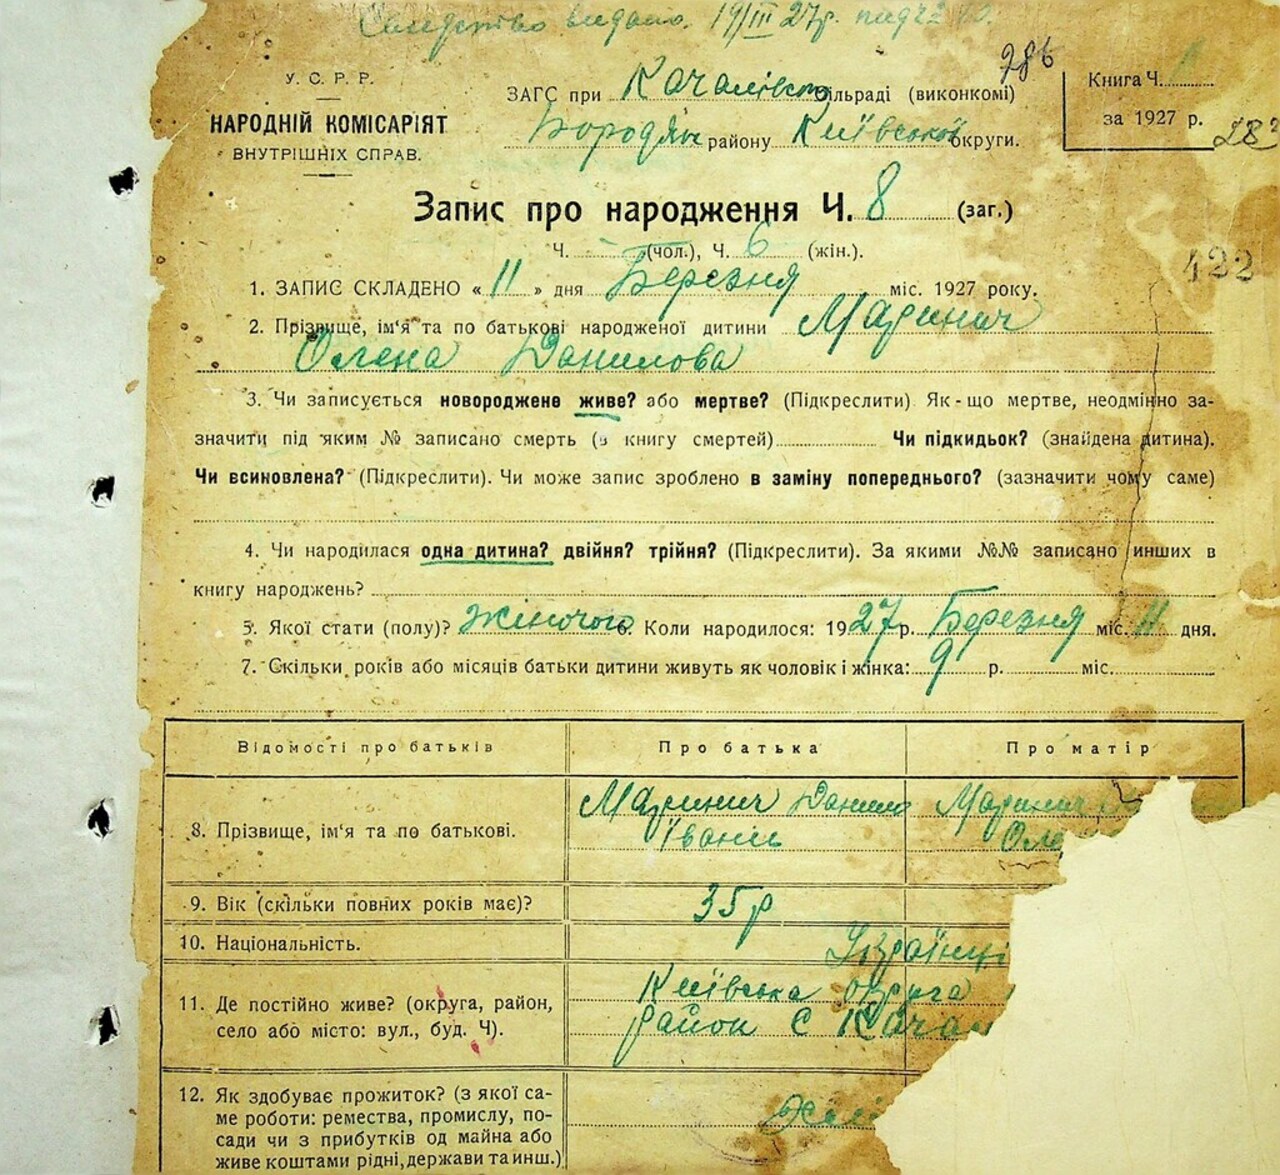 Свидетство видано. 19/III 27р. під ч2
28б
У. С. Р. Р.
НАРОДНІЙ КОМІСАРІЯТ
ВНУТРІШНІХ СПРАВ.
ЗАГС при Качалівськ сільраді (виконкомі)
Бородян району Київської округи.
Книга Ч. 1
за 1927 р.
Запис про народження Ч. 8 (заг.)
Ч. - (чол.), Ч. 6 (жін.).
122
1. ЗАПИС СКЛАДЕНО « 11 » дня Березня міс. 1927 року.
2. Прізвище, ім'я та по батькові народженої дитини Маринич
Олена Данилова
3. Чи записується новороджене живе? або мертве? (Підкреслити) Як-що мертве, неодмінно за-
значити під яким № записано смерть (в книгу смертей) Чи підкидьок? (знайдена дитина).
Чи всиновлена? (Підкреслити). Чи може запис зроблено в заміну попереднього? (зазначити чому саме)
4. Чи народилася одна дитина? двійня? трійня? (Підкреслити). За якими №№ записано инших в
книгу народжень?
5. Якої стати (полу)? Жіночого 6. Коли народилося: 1927 р. Березня міс. 11 дня.
7. Скільки років або місяців батьки дитини живуть як чоловік і жінка: 9 р. міс.
Відомості про батьків Про батька Про матір
8. Прізвище, ім'я та по батькові. Маринич Данило Маринич
Івань Оле
9. Вік (скільки повних років має)? 35р
10. Національність. Українці
11. Де постійно живе? (округа, район, Київська округа
село або місто: вул., буд. Ч). район с Качал
12. Як здобуває прожиток? (з якої са-
ме роботи: ремества, промислу, по-
сади чи з прибутків од майна або
живе коштами рідні, держави та инш.)